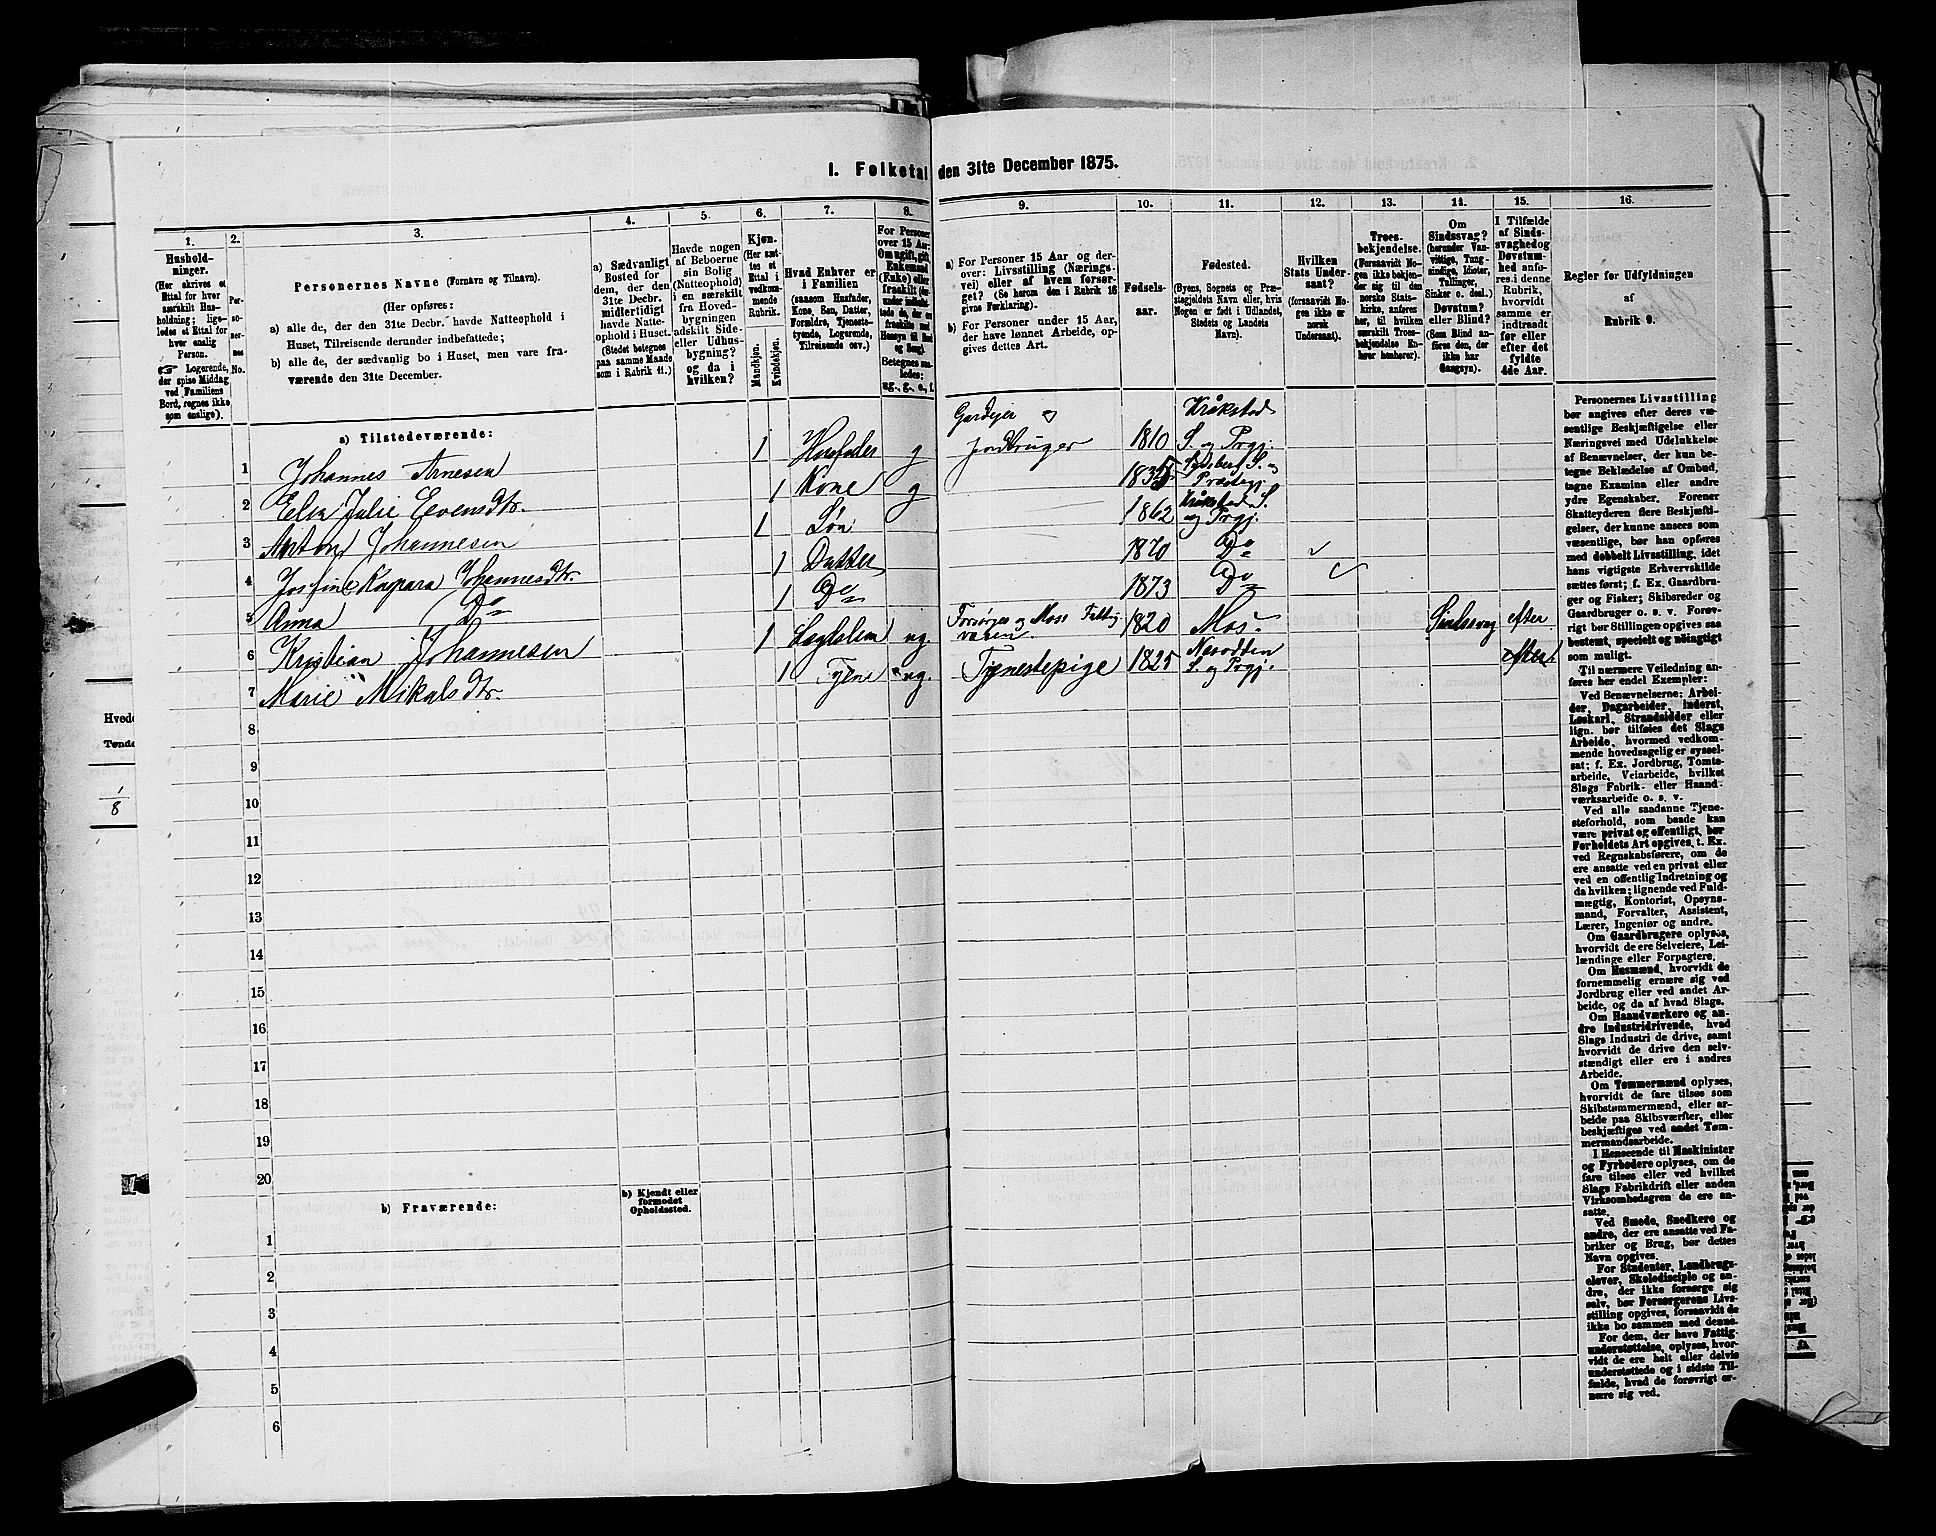 1. Folketal den 31te December 1875.
1. 2. 3. 4. 5. 6. 7. 8. 9. 10. 11. 12. 13. 14. 15. 16.
Hushold-
ninger.
(Her skrives et
Ettal for hver
særskilt Hus-
holdning; lige-
ledes et Ettal for
hver enslig
Person.
☞ Logerende,
der spise Middag
ved Familiens
Bord, regnes ikke
som enslige).
Per-
so-
ner-
nes
No.
Personernes Navne (Fornavn og Tilnavn).
(Her opføres:
a) alle de, der den 31te Decbr. havde Natteophold i
Huset, Tilreisende derunder indbefattede;
b) alle de, der sædvanlig bo i Huset, men vare fra-
værende den 31te December.
a) Sædvanligt
Bosted for
dem, der den
31te Decbr.
midlertidigt
havde Natte-
ophold i Huset.
(Stedet betegnes
paa samme Maade
som i Rubrik 11.)
Havde nogen
af Beboerne
sin Bolig
(Natteophold)
i en særskilt
fra Hoved-
bygningen
adskilt Side-
eller Udhus-
bygning?
og da i
hvilken?
Kjøn.
(Her sæt-
tes et
Ettal i
vedkom-
mende
Rubrik.
Mandkjøn.
Kvindekjøn.
Hvad Enhver er
i Familien
(saasom Husfader,
Kone, Søn, Datter,
Forældre, Tjeneste-
tyende, Logerende,
Tilreisende osv.)
For Personer
over 15 Aar:
Om ugift, gift,
Enkemand
(Enke) eller
fraskilt
Betegnes saa-
ledes:
ug., g., e., f.
a) For Personer 15 Aar og der-
over: Livsstilling (Nærings-
vei) eller af hvem forsør-
get? (Se herom den i Rubrik 16
givne Forklaring).
b) For Personer under 15 Aar,
der have lønnet Arbeide, op-
gives dettes Art.
Fødsels-
aar.
Fødested.
(Byens, Sognets og Præ-
stegjeldets Navn eller, hvis
Nogen er født i Udlandet,
Stedets og Landets
Navn).
Hvilken
Stats Under-
saat?
(forsaavidt No-
gen ikke er
norsk
Undersaat).
Troes-
bekjendelse.
(Forsaavidt No-
gen ikke bekjen-
der sig til den
norske Stats-
kirke, anføres
her, til hvilken
særskilt Troes-
bekjendelse En-
hver henhører).
Om
Sindssvag?
(herunder Van-
vittige, Tung-
sindige, Idioter,
Tullinger,
Sinker o. desl.)
Døvstum?
eller Blind?
(Som Blind an-
føres den, der
ikke har
Gangsyn).
I Tilfælde
af Sinds-
svaghed og
Døvstum-
hed anfø-
res i denne
Rubrik,
hvorvidt
samme er
indtraadt
før eller
efter det
fyldte
4de Aar.
Regler for Udfyldningen
af
Rubrik 9.
a) Tilstedeværende:
1 Johannes Arnesen 1 Husfader g Gardejer og Jordbruger 1810 Kråkstad S. og Prgj.
2 Elen Julie Evensdtr. 1 Kone g 1835 S. og Præstegj.
3 Anton Johannesen 1 Søn 1862 Kråkstad S. og Prgj.
4 Josfine Kaspara Johannesdtr. 1 Datter 1870 Do
5 Anna Do 1 Do 1873 Do
6 Kristian Johannesen 1 Lægdslem ug. Forsørges og Moss Fattigvæsen 1820 Mos. Sindsvag efter
7 Marie Mikalsdtr. 1 Tjene ug. Tjenestepige 1825 Nesodden S. og Prgj. efter
8
9
10
11
12
13
14
15
16
17
18
19
20
b) Fraværende:
b) Kjendt eller
formodet
Opholdssted.
1
2
3
4
5
6
Personernes Livsstilling
bør angives efter deres væ-
sentlige Beskjæftigelse eller
Næringsvei med Udelukkelse
af Benævnelser, der kun be-
tegne Beklædelse af Ombud,
tagne Examina eller andre
ydre Egenskaber. Forener
Skatteyderen flere Beskjæfti-
gelser, der kunne ansees som
væsentlige, bør han opføres
med dobbelt Livsstilling, idet
hans vigtigste Erhvervskilde
sættes først; f. Ex. Gaardbru-
ger og Fisker; Skibsreder og
Gaardbruger o. s. v. Forøv-
rigt bør Stillingen opgives saa
bestemt, specielt og nøiagtigt
som muligt.
Til nærmere Veiledning an-
føres her endel Exempler:
Ved Benævnelserne: Arbei-
der, Dagarbeider, Inderst,
Løskarl, Strandsidder eller
lign. bør tilføies det Slags
Arbeide, hvormed vedkom-
mende hovedsagelig er syssel-
sat; f. Ex. Jordbrug, Tomte-
arbeide, Veiarbeide, hvilket
Slags Fabrik- eller Haand-
værksarbeide o. s. v.
Ved alle saadanne Tjene-
steforhold, som baade kan
være privat og offentligt, bør
Forholdets Art opgives, t. Ex.
ved Regnskabsførere, om de
ere ansatte ved en privat eller
ved en offentlig Indretning og
da hvilken; lignende ved Fuld-
mægtig, Kontorist, Opsyns-
mand, Forvalter, Assistent,
Lærer, Ingeniør og andre.
Om Gaardbrugere oplyses,
hvorvidt de ere Selveiere, Lei-
lændinge eller Forpagtere.
Om Husmænd, hvorvidt de
fornemmelig ernære sig ved
Jordbrug eller ved andet Ar-
beide, og da af hvad Slags.
Om Haandværkere og an-
dre Industridrivende, hvad
Slags Industri de drive, samt
hvorvidt de drive den selv-
stændigt eller ere i andres
Arbeide.
Om Tømmermænd oplyses,
hvorvidt de fare tilsøs som
Skibstømmermænd, eller ar-
beide paa Skibsværfter, eller
beskjæftiges ved andet Tøm-
mermandsarbeide.
I Henseende til Maskinister
og Fyrbødere oplyses, om de
fare tilsøs eller ved hvilket
Slags Fabrikdrift eller anden
Virksomhed sgren de ere an-
satte.
Ved Smede, Snedkere og
andre, der ere ansatte ved Fa-
briker og Brug, bør dettes
Navn opgives.
For Studenter, Landbrugs-
elever, Skoledisciple og an-
dre, der ikke forsørge sig
selv, bør Forsørgerens Livs-
stilling opgives, forsaavidt de
ikke bo sammen med denne.
For dem, der have Fattig-
understøttelse, oplyses, hvor-
vidt de ere helt eller delvis
understøttede og i sidste Til-
fælde, hvad de forøvrigt er-
nære sig ved.
Hvede
Tønde
1/8